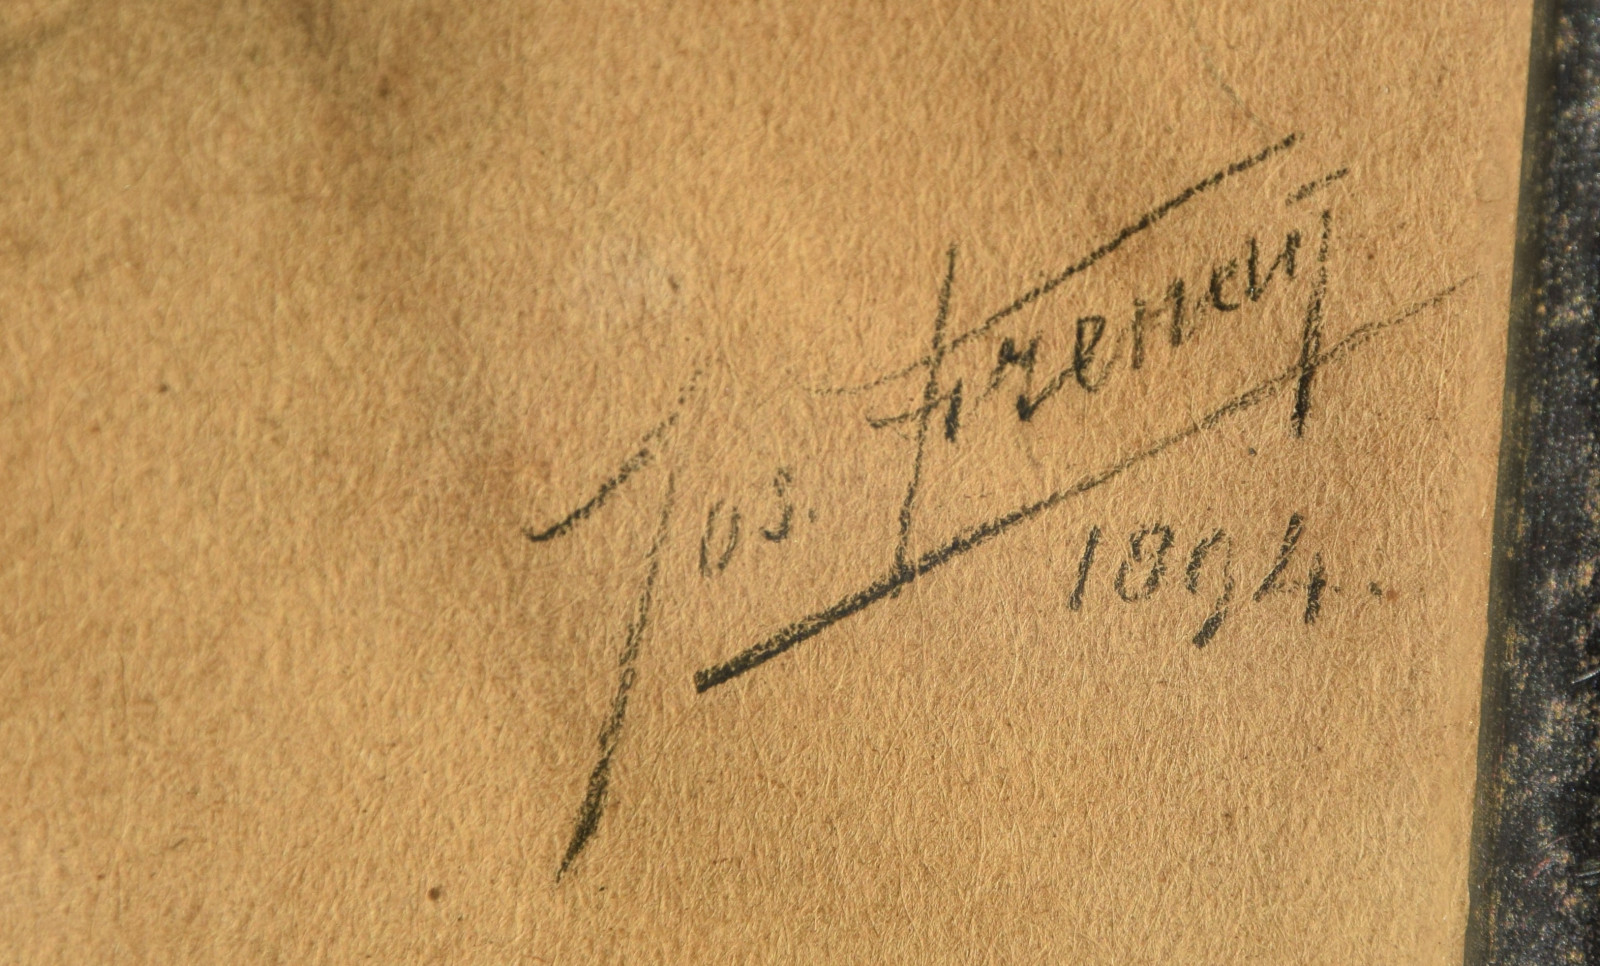 Jos. Freney
1894.